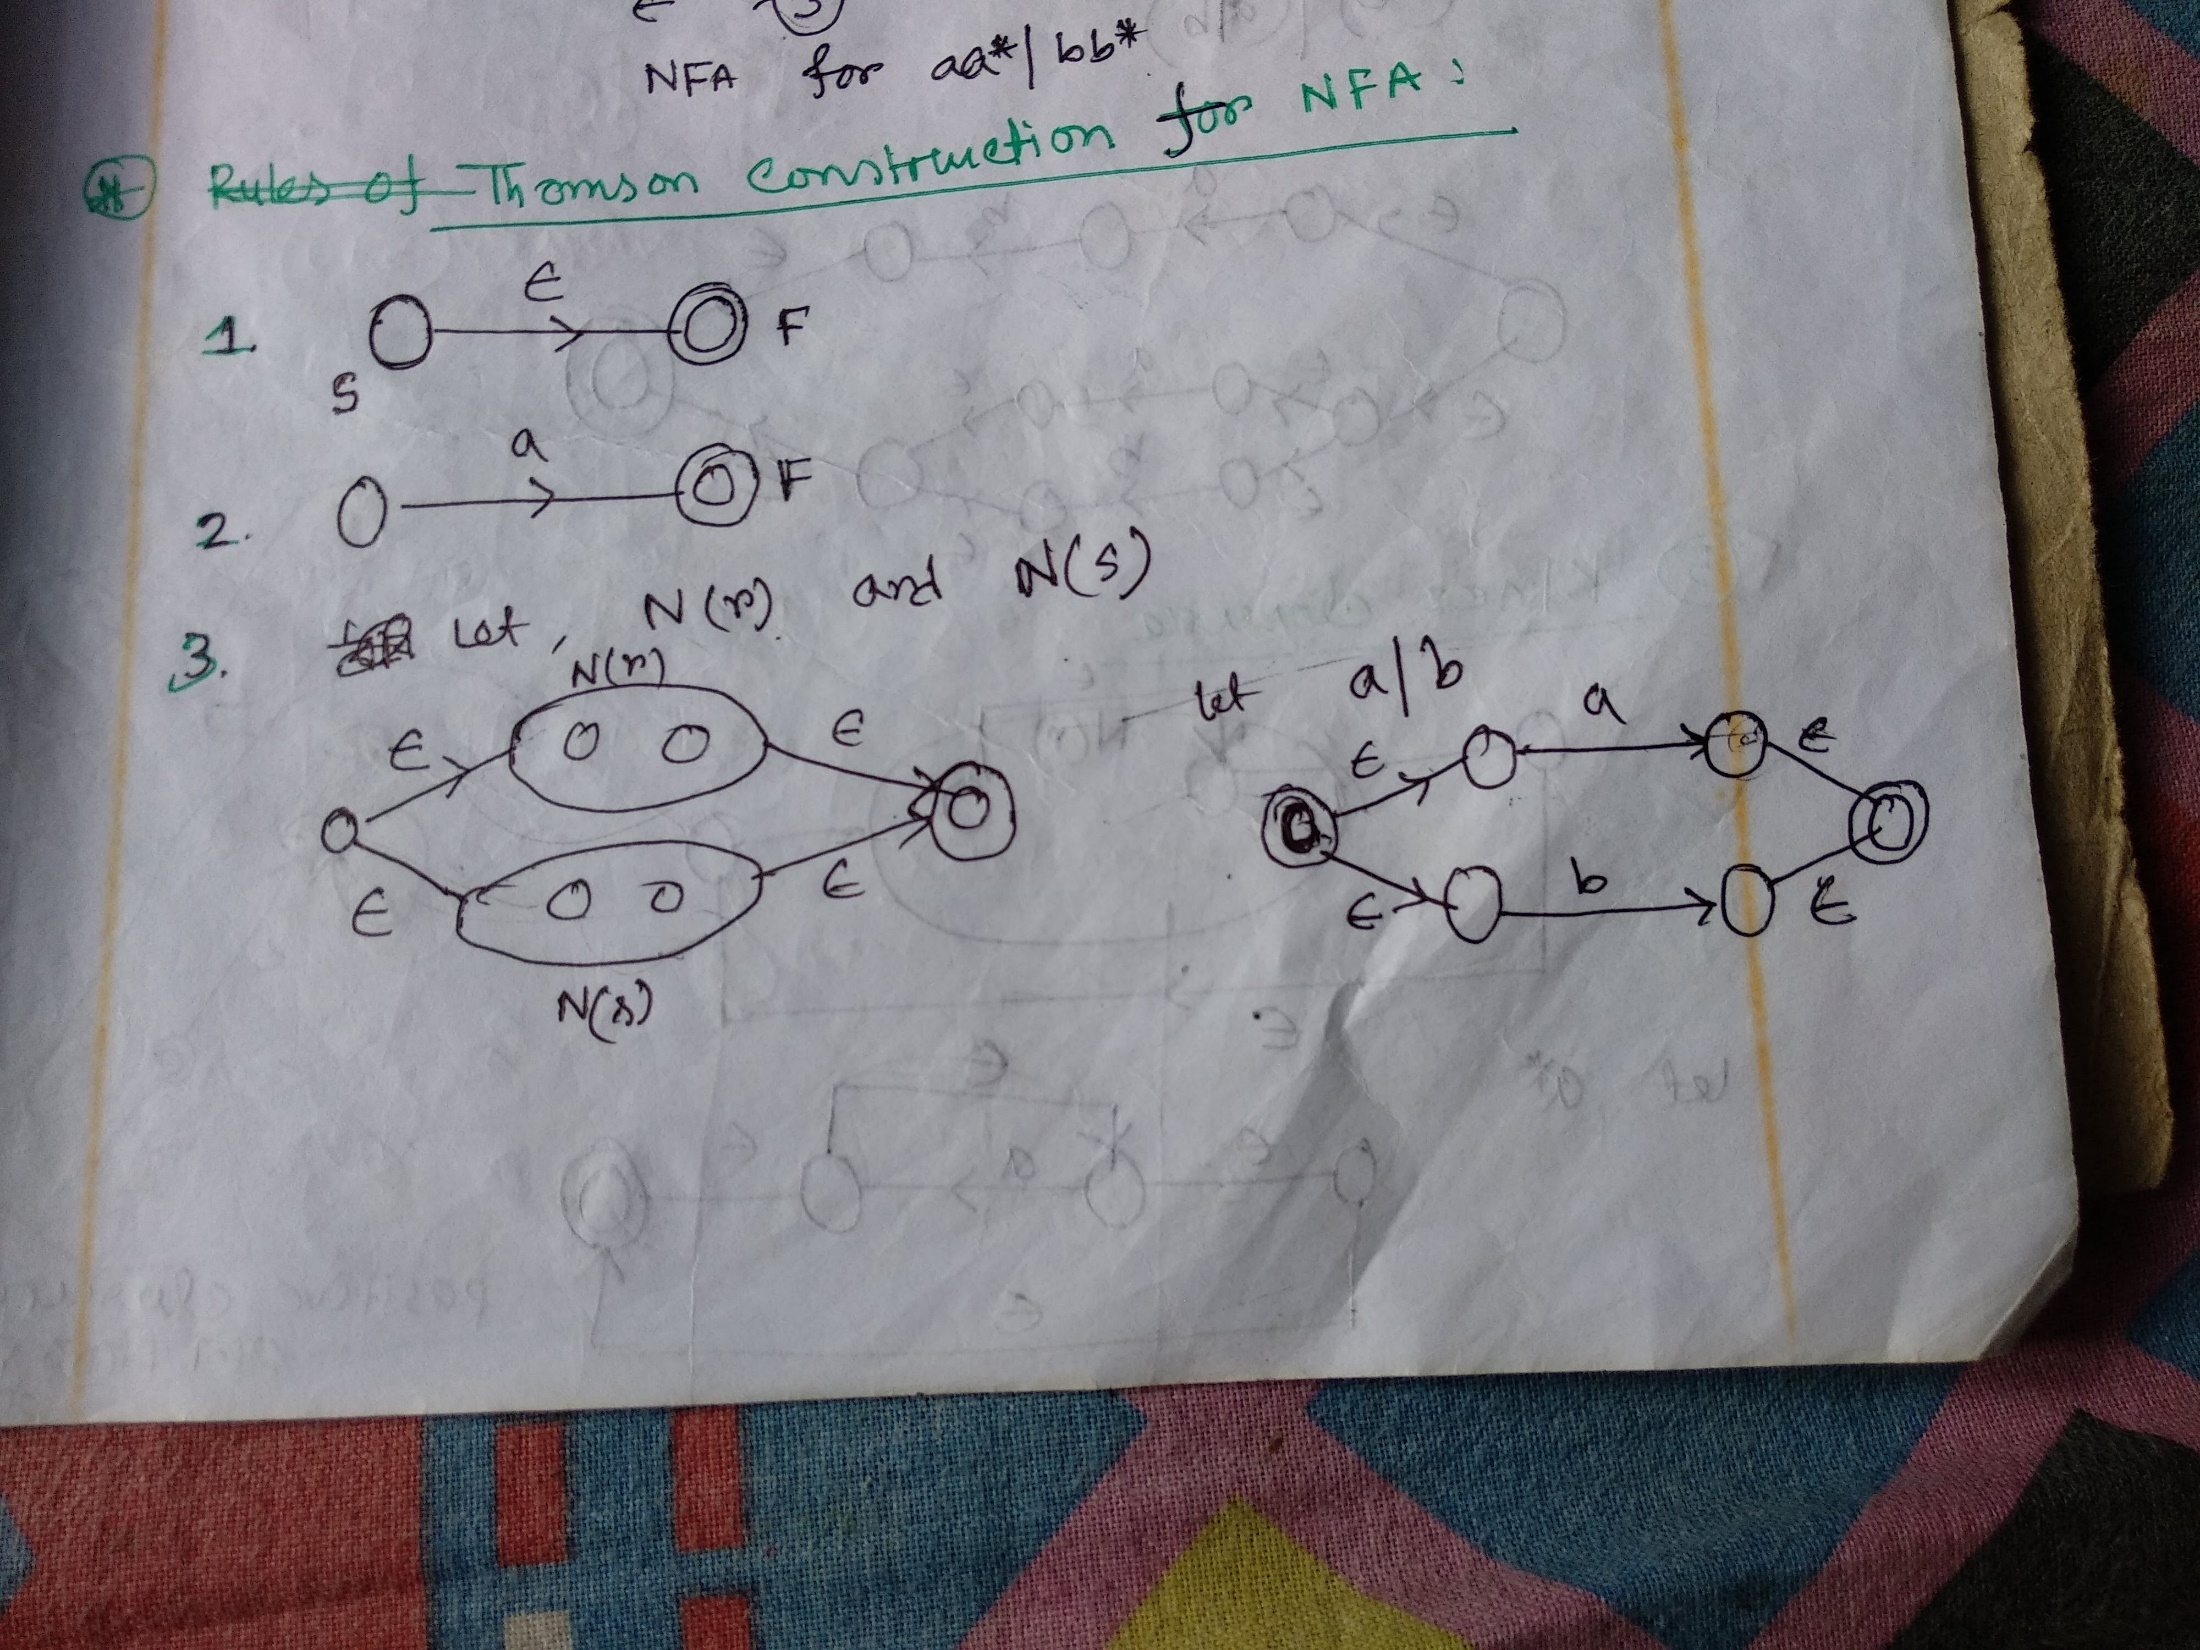 ϵ 3
NFA for aa*| bb*
Rules of Thomson construction for NFA :
1. S ϵ F
2. a F
3. Let, N(r) and N(s)
N(r)
ϵ ϵ
ϵ ϵ
N(s)
let a|b
ϵ a ϵ
ϵ b ϵ